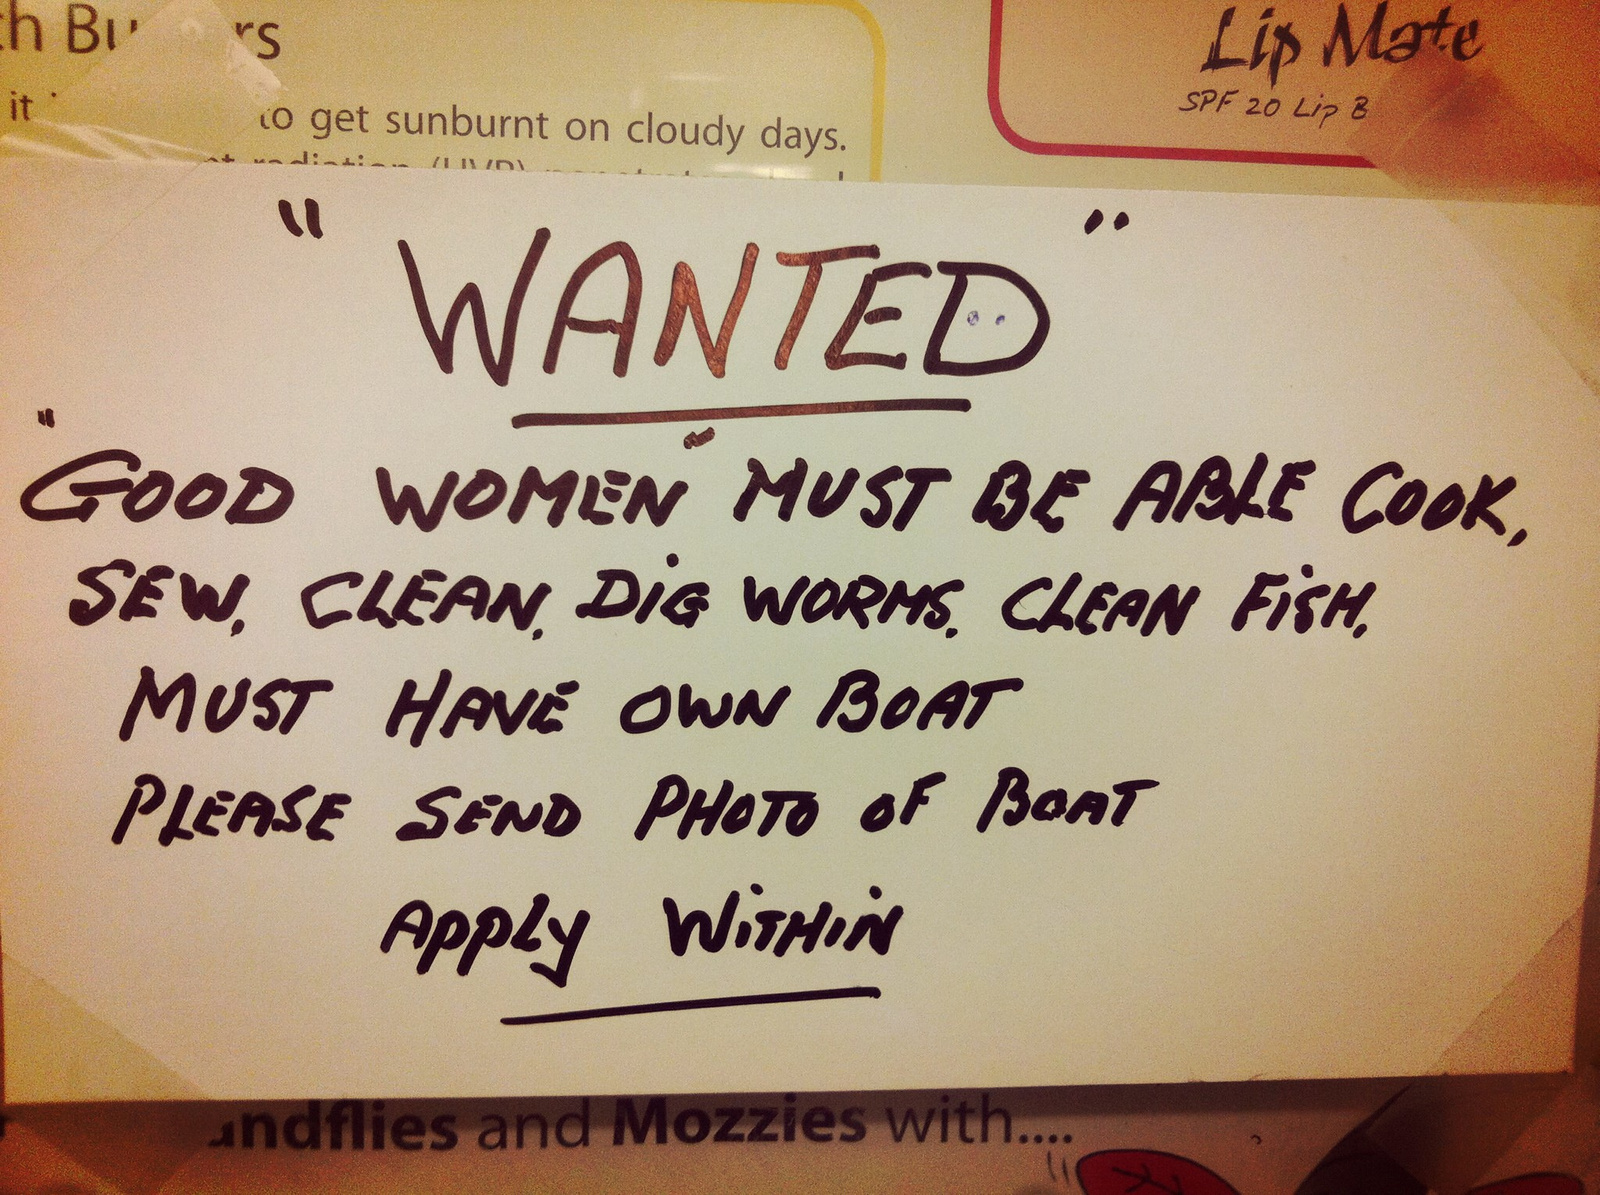 to get sunburnt on cloudy days.
radiation (UVB)
Lip Mate
SPF 20 Lip B
" WANTED "
"GOOD WOMEN" MUST BE ABLE COOK,
SEW, CLEAN, DIG WORMS, CLEAN FISH,
MUST HAVE OWN BOAT
PLEASE SEND PHOTO OF BOAT
APPLY WITHIN
ndflies and Mozzies with....